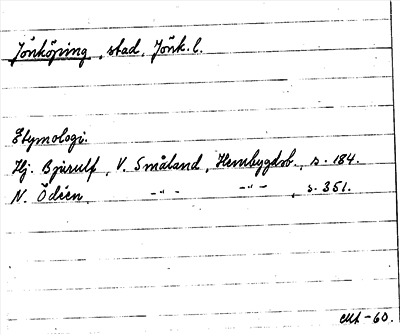 Jönköping, stad, Jönk. l.
Etymologi.
Hj. Bjurulf, V. Småland, Hembygdsb., s. 184.
N. Ödéen, -"- -"-, s. 351.
-60.